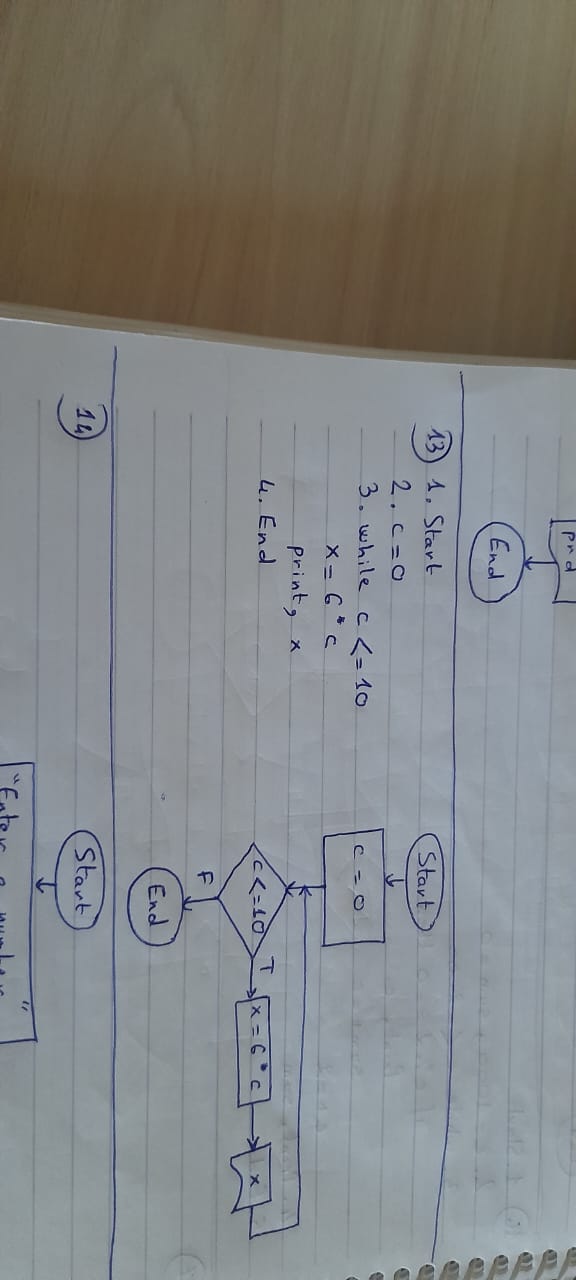 prd
End
13 1. Start
2. c=0
3. while c <= 10
x = 6 * c
print, x
4. End
Start
c = 0
c <= 10
T
x = 6 * c
x
F
End
14
Start
"Enter a number"